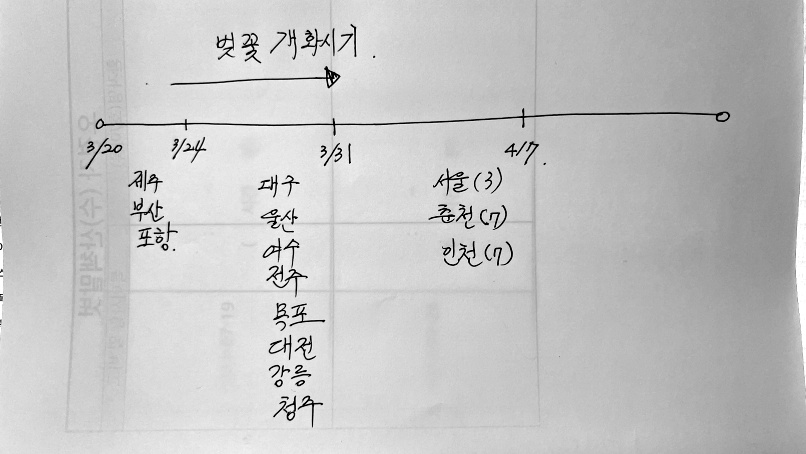 벚꽃 개화시기.
3/20 3/24 3/31 4/7.
제주 대구 서울(3)
부산 울산 춘천(7)
포항. 여수 인천(7)
전주
목포
대전
강릉
청주